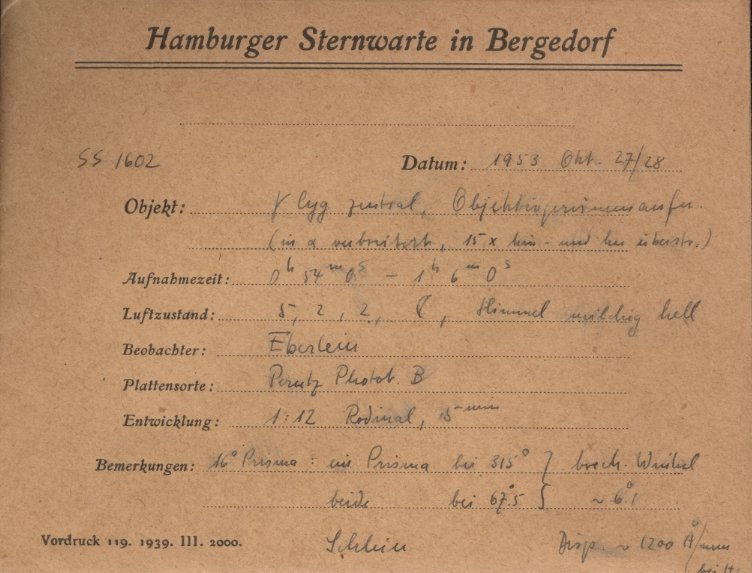 Hamburger Sternwarte in Bergedorf
SS 1602 Datum: 1953 Okt. 27/28
Objekt: γ Cyg zentral, Objektivprismenaufn.
(in α verbreitert, 15 x hin- und her überstr.)
Aufnahmezeit: 0h 54m 0s - 1h 6m 0s
Luftzustand: 5, 2, 2, Himmel milchig hell
Beobachter: Eberlein
Plattensorte: Perutz Photot. B
Entwicklung: 1:12 Rodinal, 5 min
Bemerkungen: 16° Prisma: ein Prisma bei 315° } brech. Winkel
beide bei 67.5 ~ 6°.1
Vordruck 119. 1939. III. 2000. Disp. ~ 1200 Å/mm